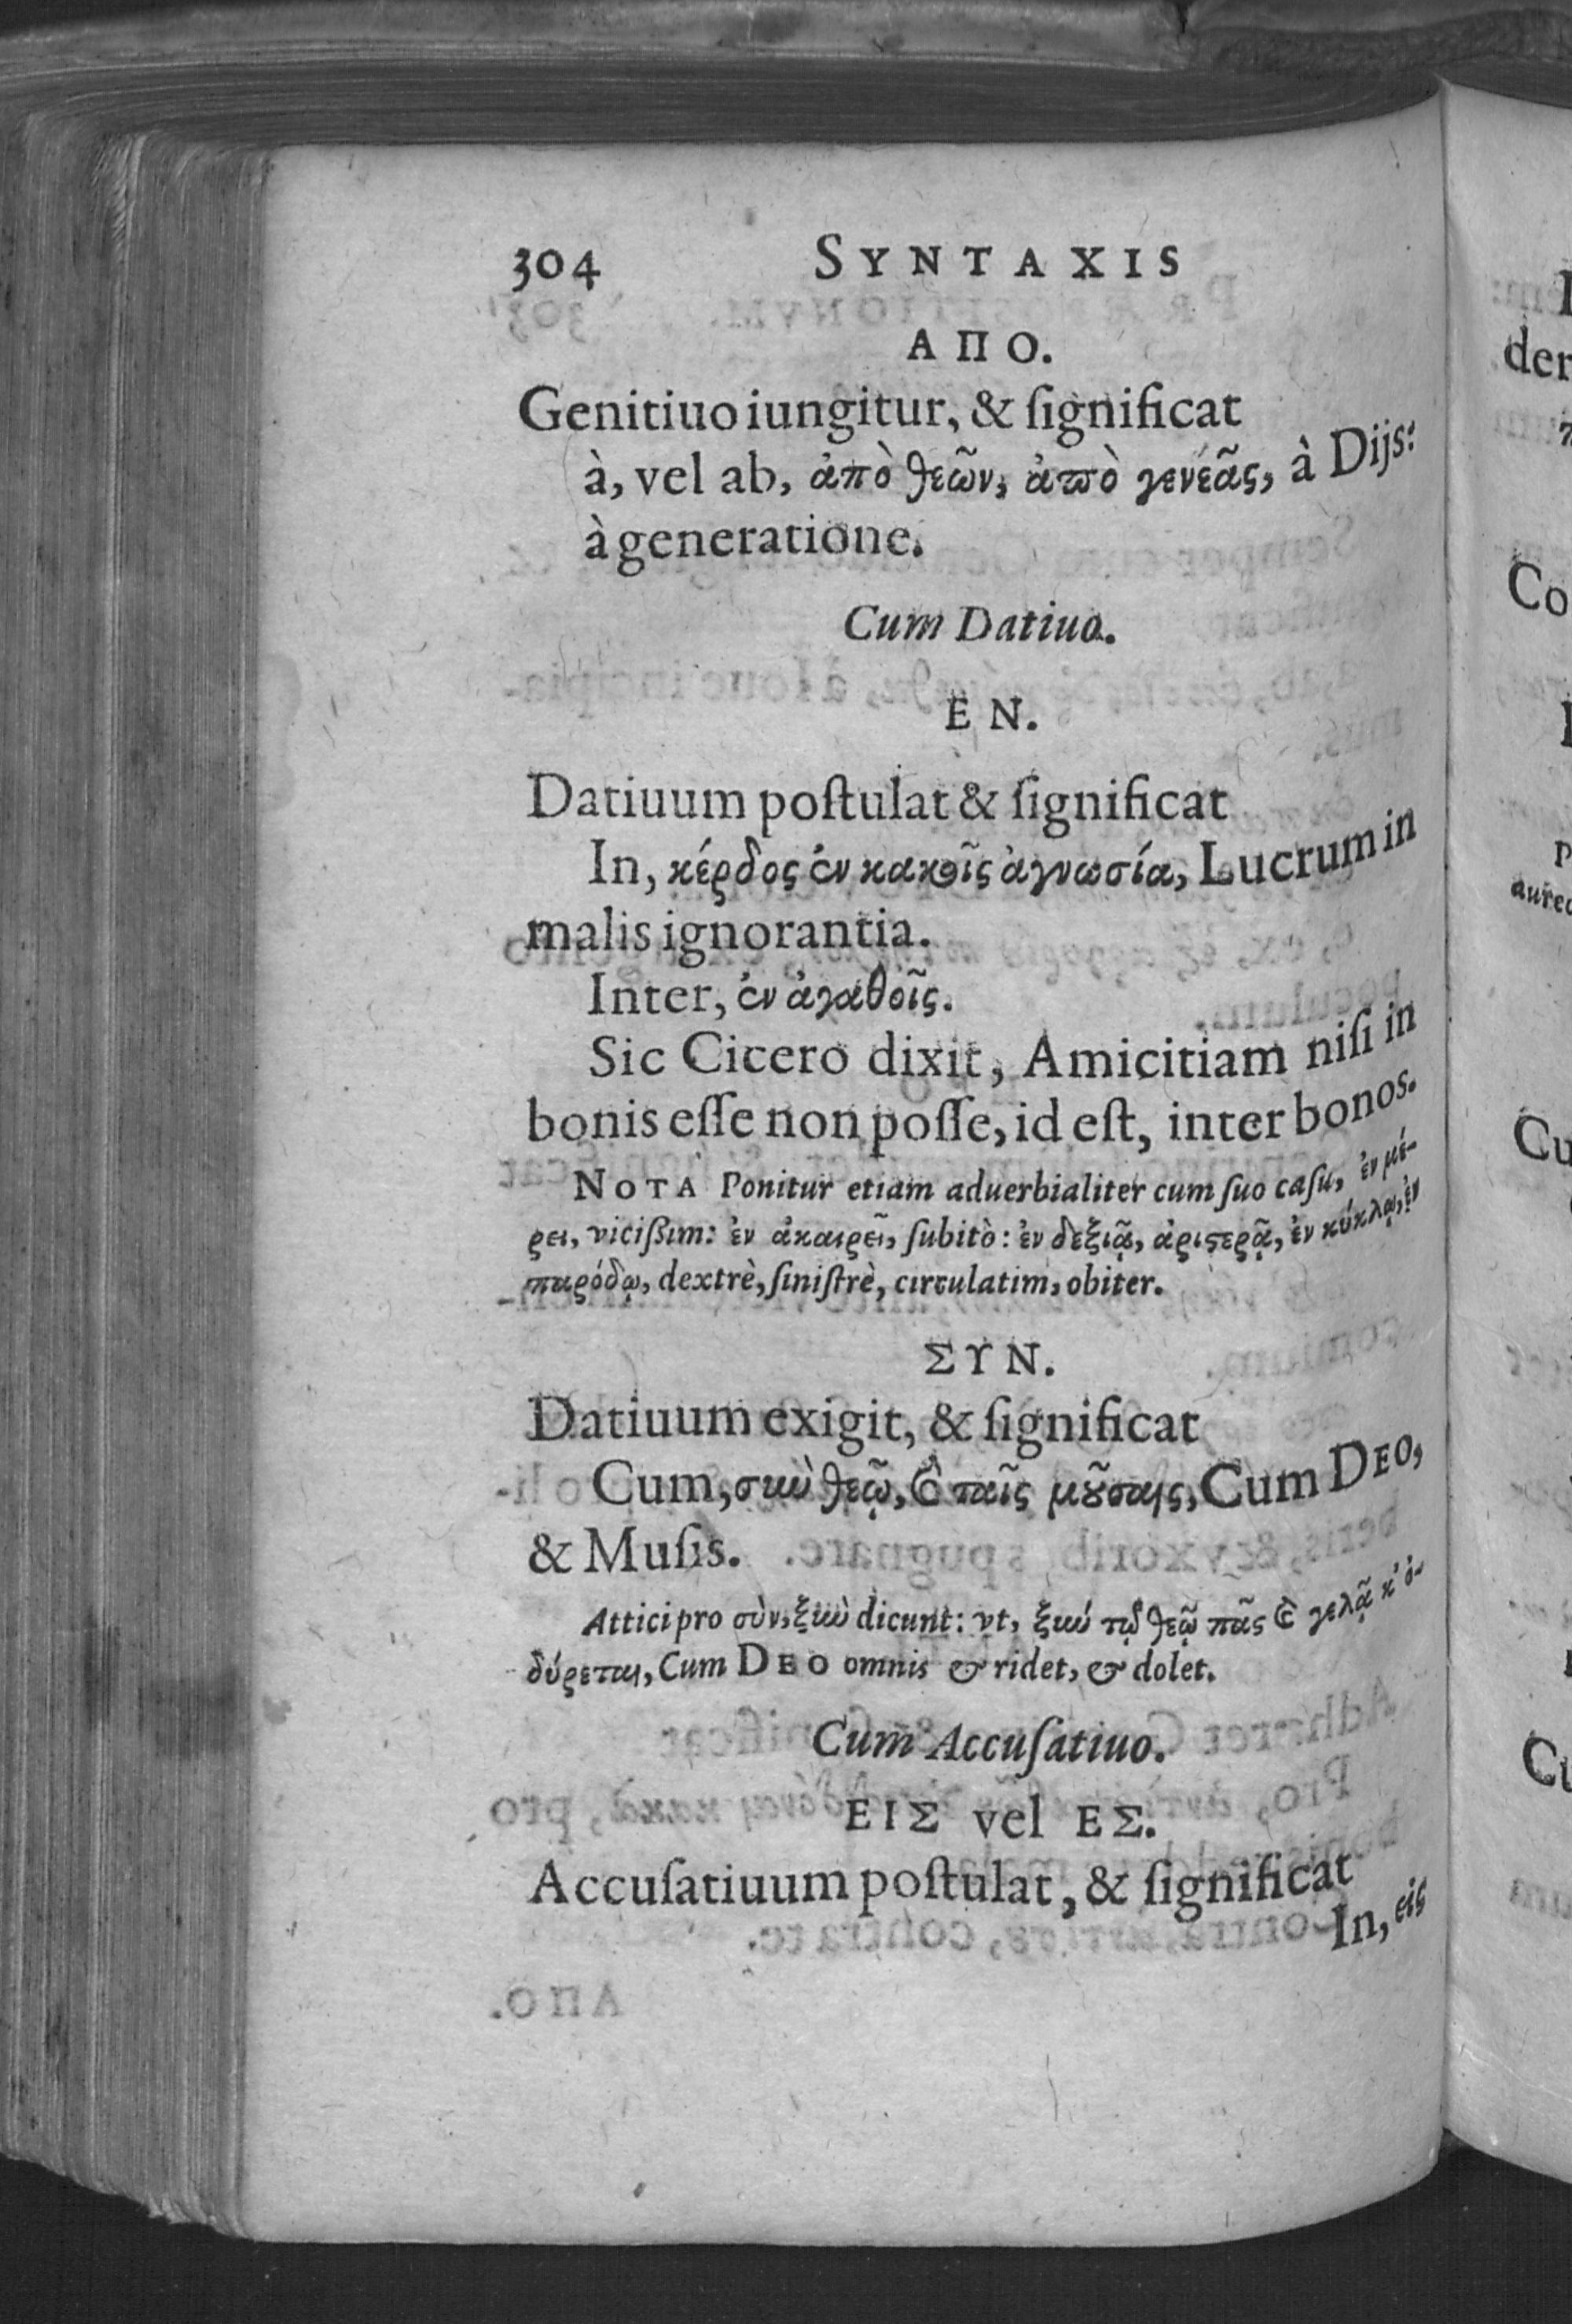 304 SYNTAXIS
ΑΠΟ.
Genitiuo iungitur, & ſignificat
à, vel ab, ἀπὸ θεῶν, ἀπὸ γενεᾶς, à Dijs:
à generatione.
Cum Datiuo.
ΕΝ.
Datiuum poſtulat & ſignificat
In, κέρδος ἐν κακοῖς ἀγνωσία, Lucrum in
malis ignorantia.
Inter, ἐν ἀγαθοῖς.
Sic Cicero dixit, Amicitiam niſi in
bonis eſſe non poſſe, id eſt, inter bonos.
NOTA Ponitur etiam aduerbialiter cum ſuo caſu, ἐν μέ-
ρει, viciſſim: ἐν ἀκαιρεῖ, ſubitò: ἐν δεξιᾷ, ἀριστερᾷ, ἐν κύκλῳ, ἐν
παρόδῳ, dextrè, ſiniſtrè, circulatim, obiter.
ΣΥΝ.
Datiuum exigit, & ſignificat
Cum, σὺν θεῷ, καὶ ταῖς μούσαις, Cum DEO,
& Muſis.
Attici pro σὺν, ξὺν dicunt: vt, ξύν τῷ θεῷ πᾶς καὶ γελᾷ κ' ὀ-
δύρεται, Cum DEO omnis & ridet, & dolet.
Cum Accuſatiuo.
ΕΙΣ vel ΕΣ.
Accuſatiuum poſtulat, & ſignificat
In, εἰς
der
Co
aureo
Cu